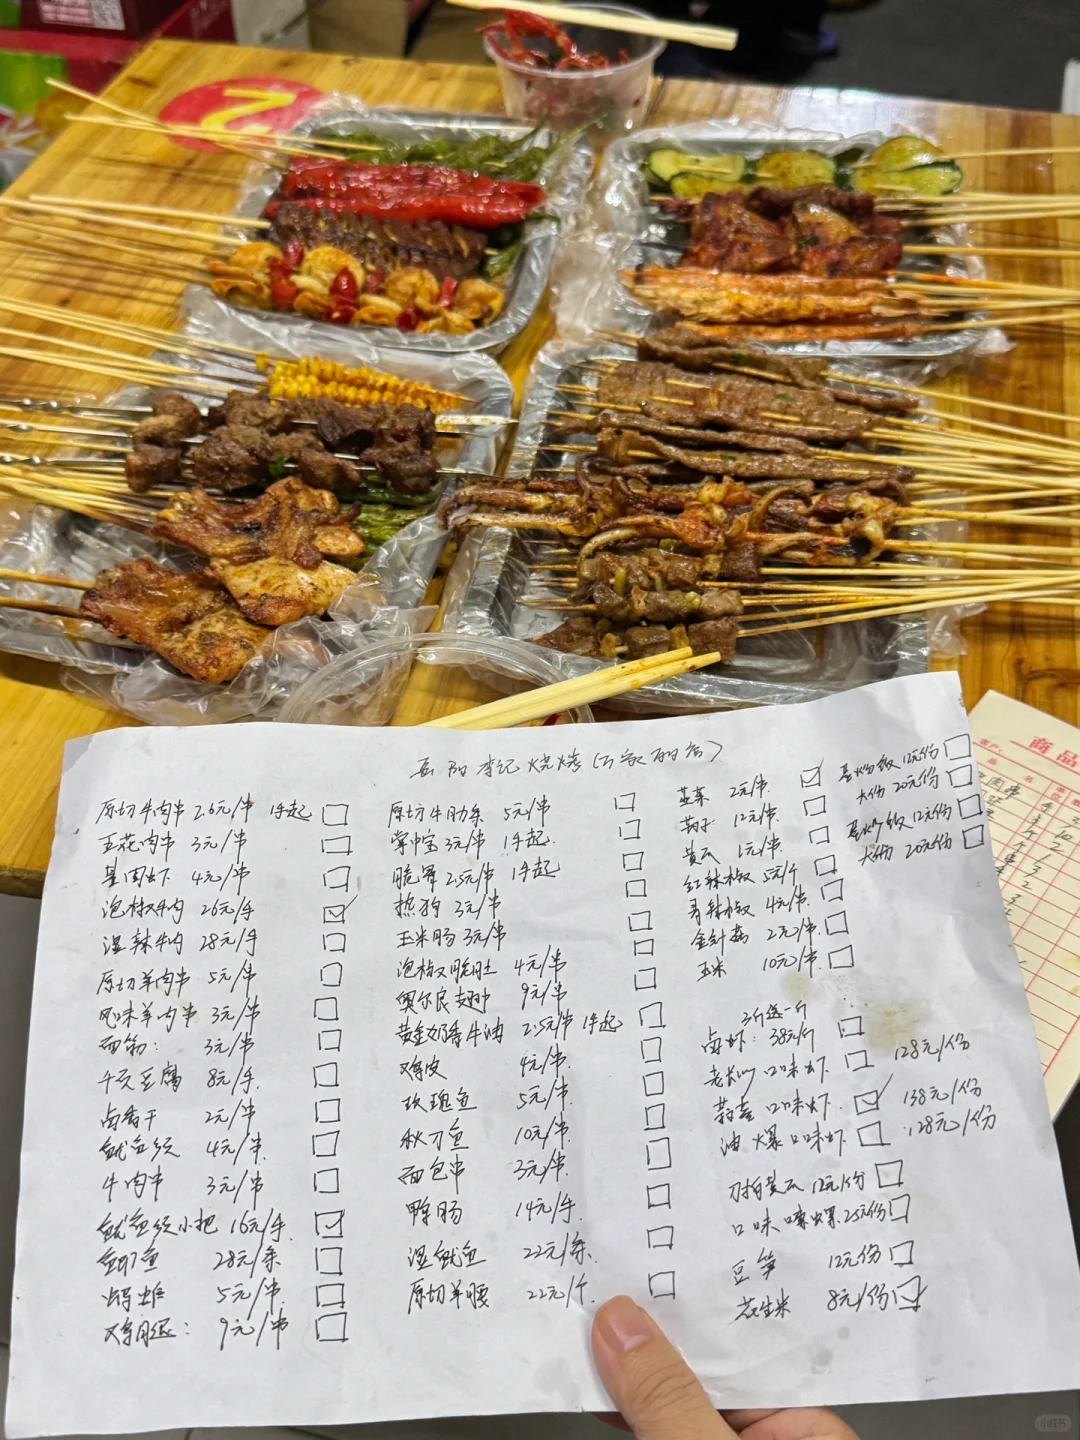 岳阳李记烧烤(万家丽店)
原切牛肉串 2.6元/串 1手起
五花肉串 3元/串
基围虾 4元/串
泡椒牛肉 26元/手
湿辣牛肉 28元/手
原切羊肉串 5元/串
风味羊肉串 3元/串
面筋: 3元/串
千页豆腐 8元/手
卤香干 2元/串
鱿鱼须 4元/串
牛肉串 3元/串
鱿鱼须小把 16元/手
鲷鱼 28元/条
5元/串
9元/串
原切牛肋条 5元/串
掌中宝 3元/串 1手起
脆骨 2.5元/串 1手起
热狗 3元/串
玉米肠 3元/串
泡椒脆肚 4元/串
奥尔良翅中 9元/串
黄金奶香牛油 2.5元/串 1手起
鸡皮 4元/串
玫瑰鱼 5元/串
秋刀鱼 10元/串
面包串 3元/串
鸭肠 14元/手
湿鱿鱼 22元/条
原切羊腰 22元/个
韭菜 2元/串
茄子 12元/串
黄瓜 1元/串
红辣椒 5元/个
青辣椒 4元/串
金针菇 2元/串
玉米 10元/串
12元/份
大份 20元/份
12元/份
大份 20元/份
3斤送一斤
卤虾: 38元/斤
老长沙口味虾 128元/份
蒜蓉口味虾 138元/份
油爆口味虾 128元/份
刀拍黄瓜 12元/份
口味嗦螺 25元/份
豆笋 12元/份
花生米 8元/份
商品
小红书